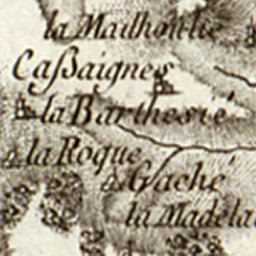 la Madhoulie
Caßaignes
la Barthesié
la Roque
Gaché
la Madela